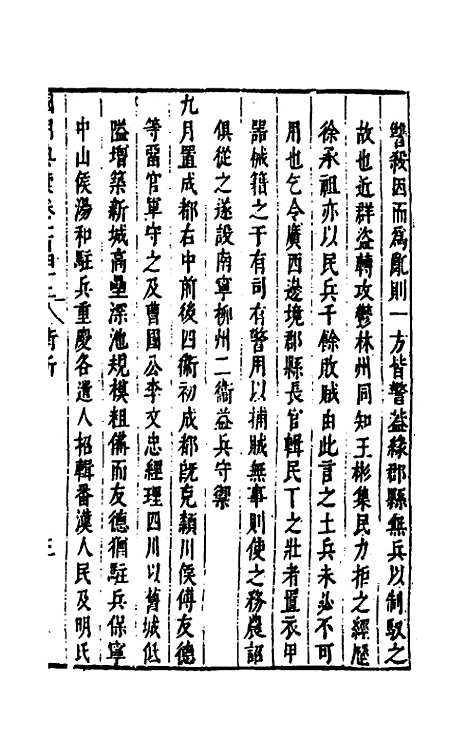 讐殺因而爲亂則一方皆警蓋緣郡縣無兵以制馭之
故也近群盗轉攻鬱林州同知王彬集民力拒之經歷
徐承祖亦以民兵千餘敗賊由此言之土兵未必不可
用也乞令廣西邊境郡縣長官輯民丁之壯者置衣甲
器械籍之于有司有警用以捕賊無事則使之務農詔
俱從之遂設南寧柳州二衞益兵守禦
九月置成都右中前後四衞初成都旣克潁川侯傅友德
等畱官軍守之及曹國公李文忠經理四川以舊城低
隘增築新城高壘深池規模粗備而友德猶駐兵保寧
中山侯湯和駐兵重慶各遣人招輯番漢人民及明氏
衞所 三